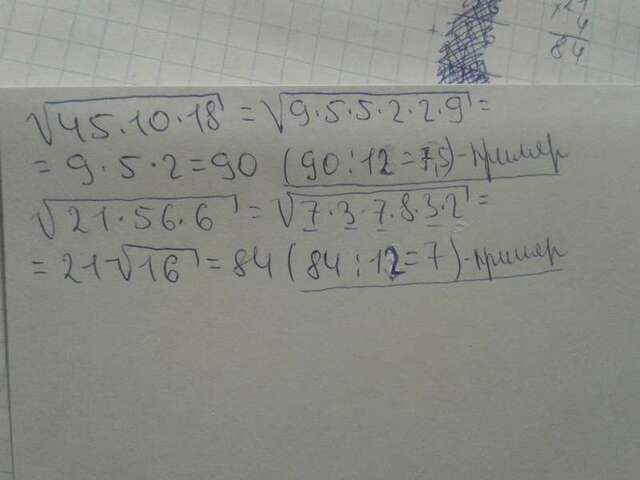 ×21
4
84
√45·10·18 = √9·5·5·2·2·9 =
= 9·5·2=90 (90:12=7,5)-пример
√21·56·6 = √7·3·7·8·3·2 =
= 21√16 = 84 (84:12=7)-пример